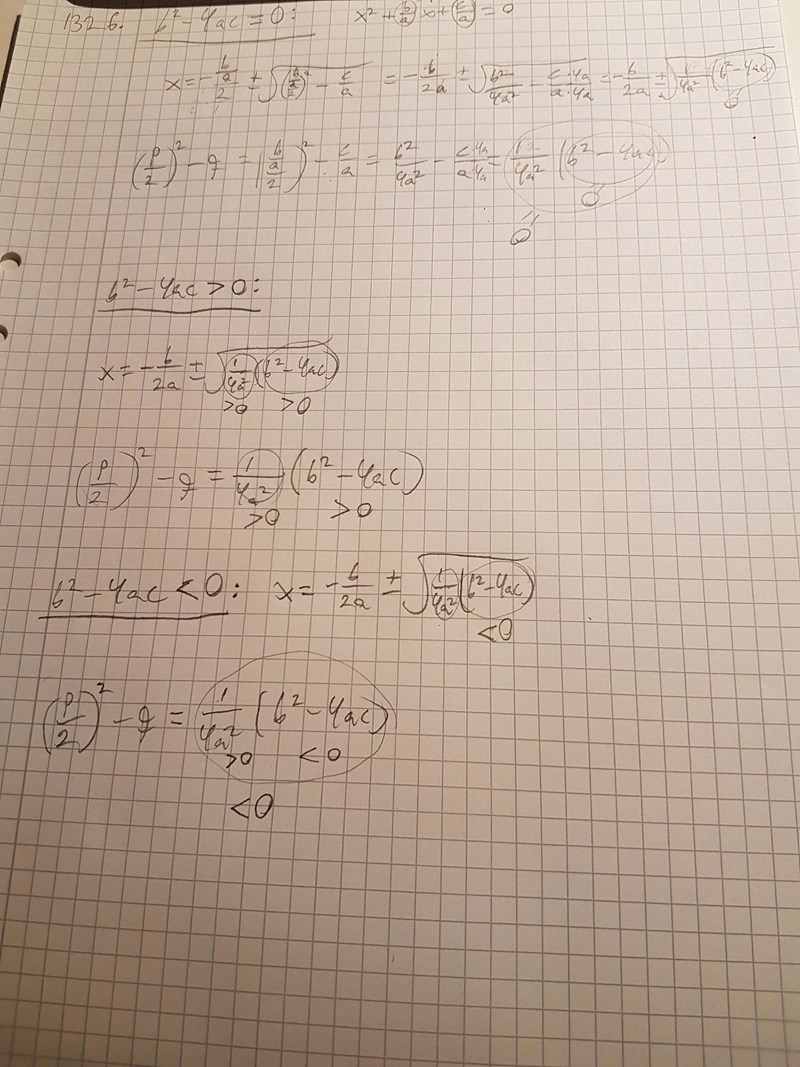 1326. b² - 4ac = 0: x² + (b/a)x + (c/a) = 0
x = -(b/a)/2 ± √(((b/a)/2)² - c/a) = -b/2a ± √(b²/4a² - c·4a/a·4a) = -b/2a ± √(1/4a² (b² - 4ac))
0
(p/2)² - q = ((b/a)/2)² - c/a = b²/4a² - c·4a/a·4a = 1/4a² (b² - 4ac)
0
0
b² - 4ac > 0:
x = -b/2a ± √(1/4a² (b² - 4ac))
>0 >0
(p/2)² - q = 1/4a² (b² - 4ac)
>0 >0
b² - 4ac < 0: x = -b/2a ± √(1/4a² (b² - 4ac))
<0
(p/2)² - q = 1/4a² (b² - 4ac)
>0 <0
<0